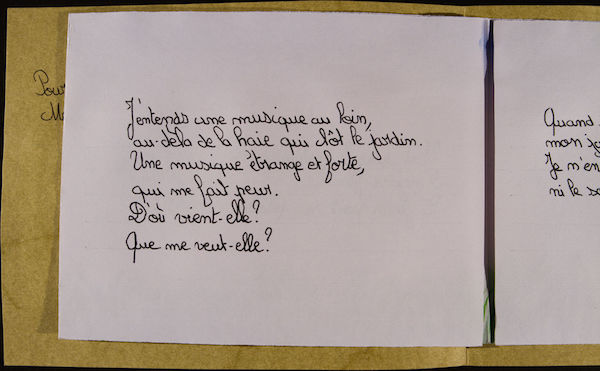 Pour
J'entends une musique au loin,
au-delà de la haie qui clôt le jardin.
Une musique étrange et forte,
qui me fait peur.
D'où vient-elle?
Que me veut-elle?
Quand
mon
Je n'en
ni le